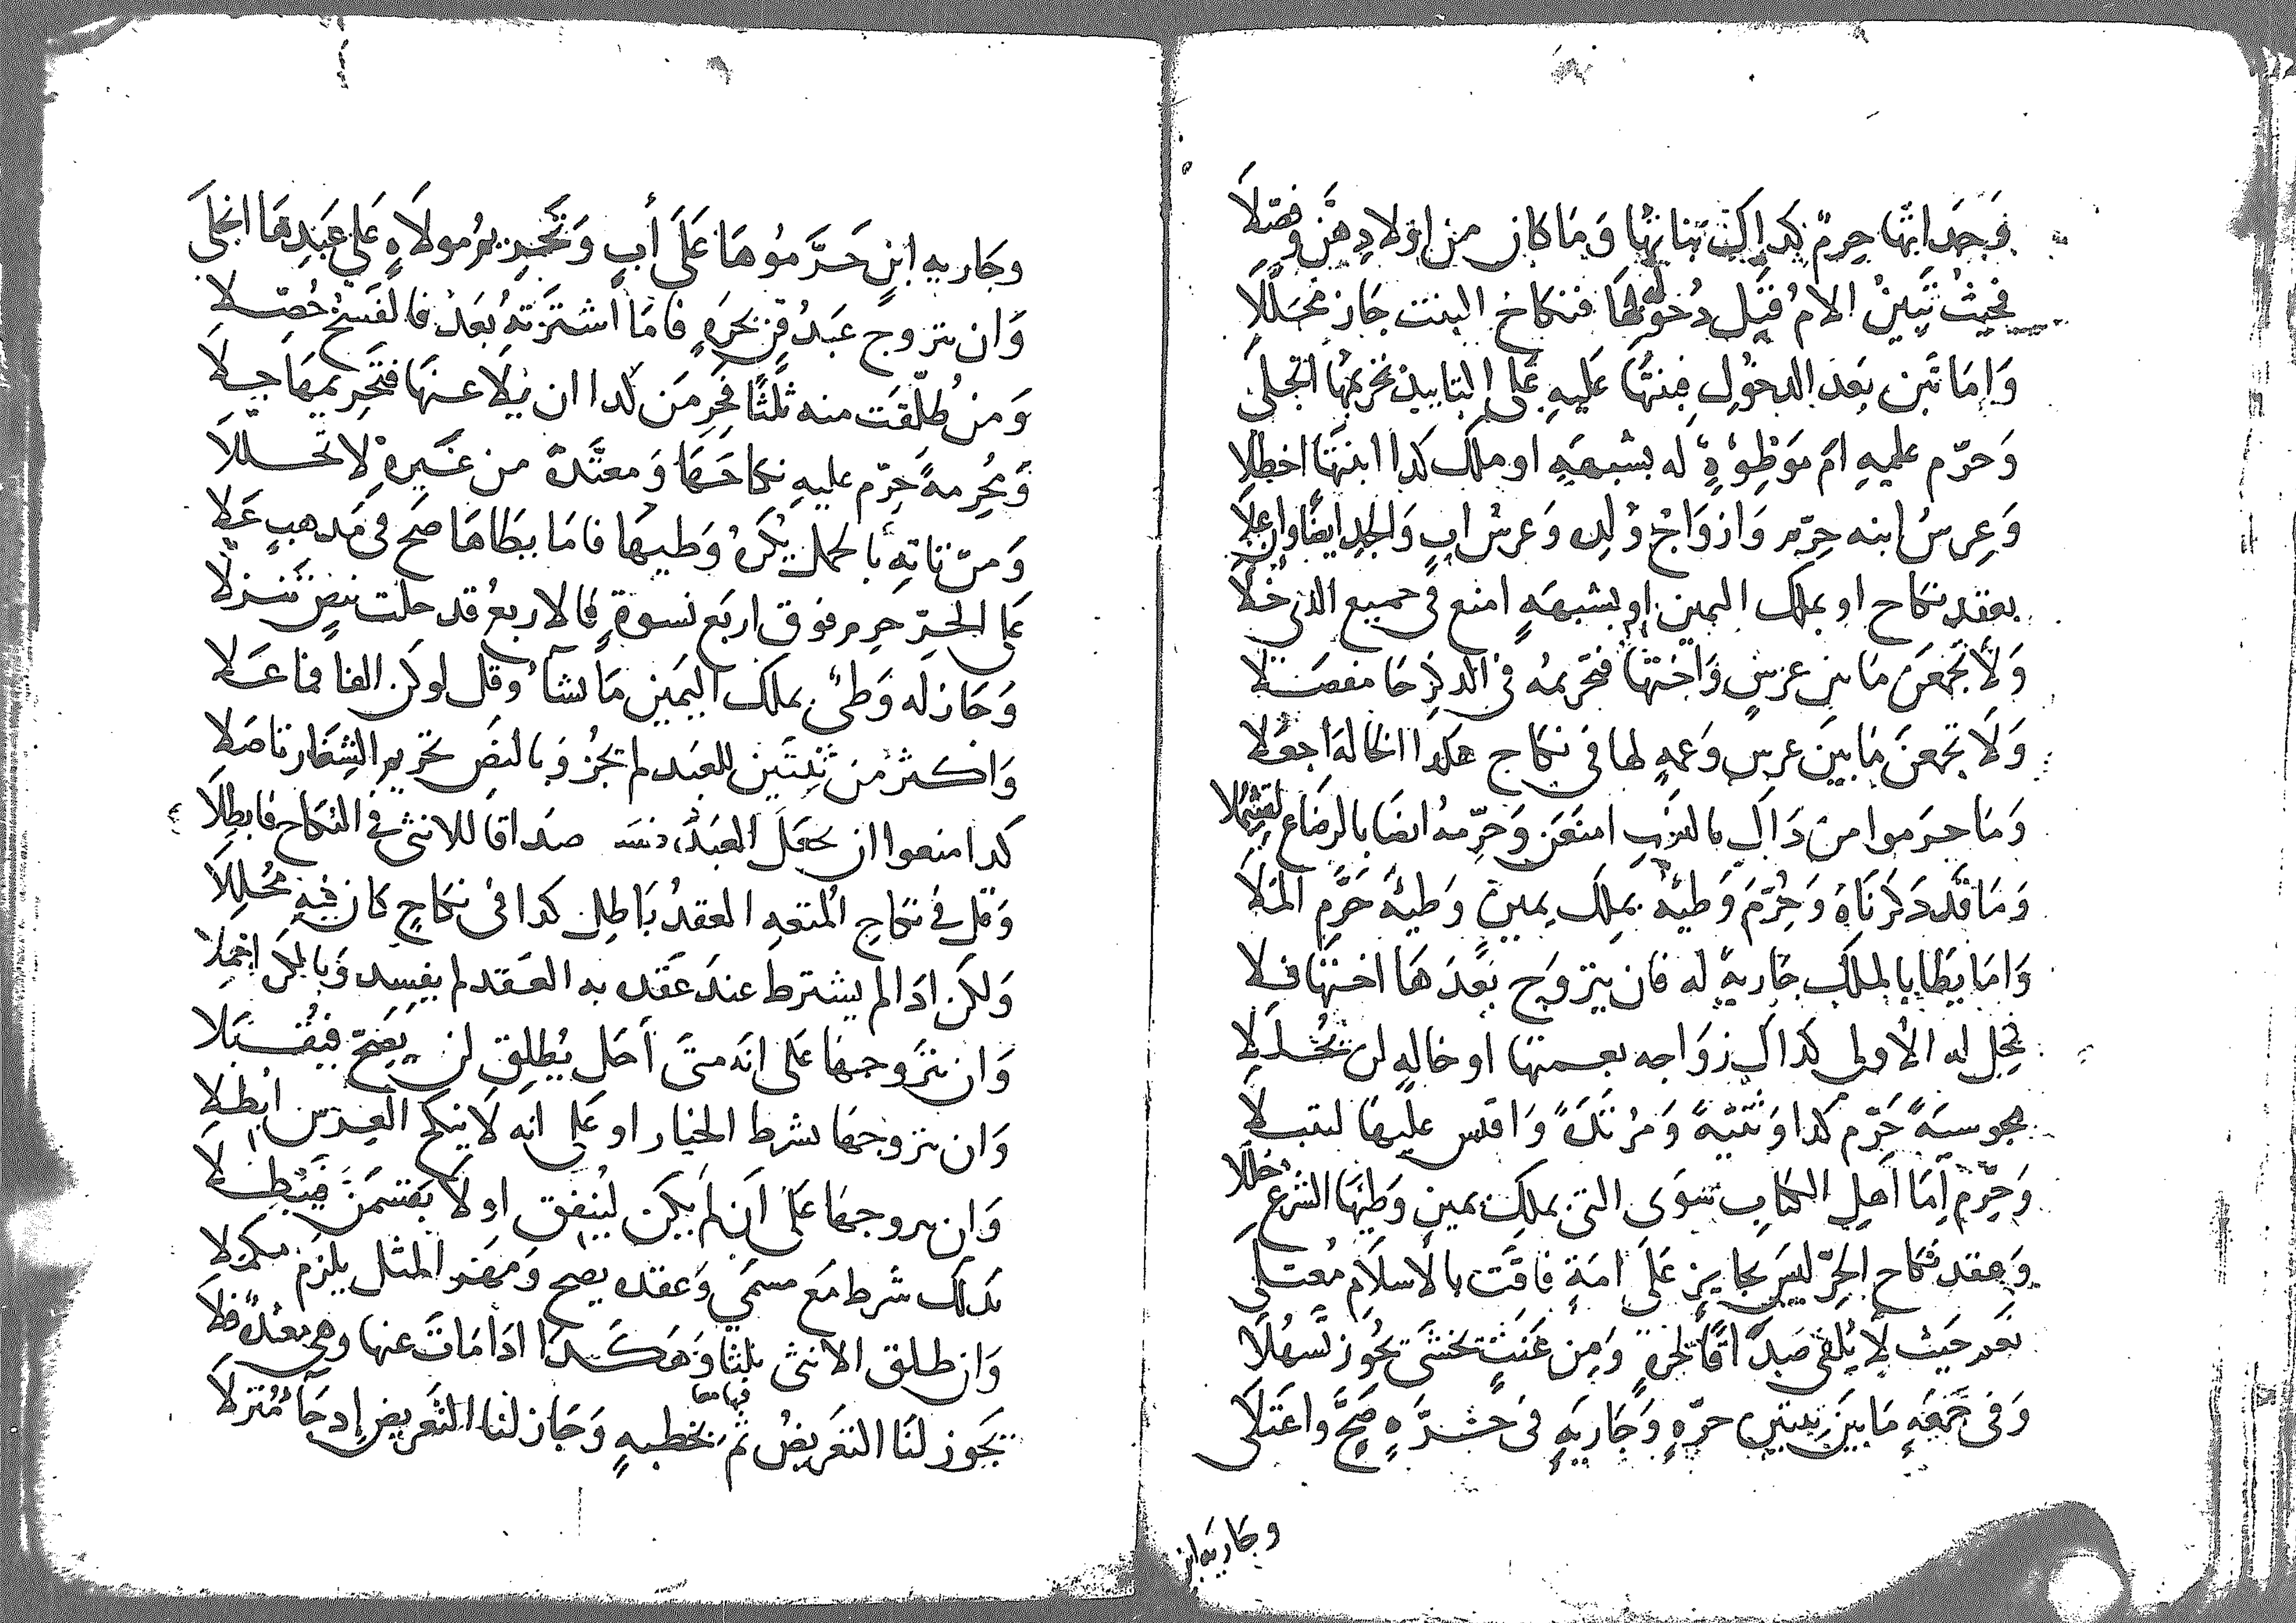 وَجَداتها حرم كداك بناتها وَمَا كان من اولادهن وفصّلا
فحيث تبين الام قبل دخوله بها فنكاح البنت جاز محللا
وَاما تبن بعد الدخول فبنتها عليه على التابيد تحريمها انجلى
وَحرّم عليه ام موطوءة له بشبهةٍ او ملك كدا ابنتها اخطلا
وَعرسُ ابنه حرّم وَازواج ولده وَعرس ابٍ وَالجد ايضًا وان علا
بعقد نكاح او بملك اليمين او بشبهةٍ امنع في جميع الذي خلا
وَلا تجمعن مَا بين عرسٍ وَاختها فتحريمه في الذكر جا مفصّلا
وَلا تجمعن مَا بين عرسٍ وَعمةٍ لها في نكاح هكدا الخالة اجعلا
وَمَا حرموا من داك بالنسب امنعن وَحرّمه ايضا بالرضاع لتفضلا
وَمَا قد دكرناهُ وَحرّم وَطيه بملك يمين وطيهُ حَرّم الملا
وَاما يطا بالملك جارية له فان يتزوج بَعدهَا اختها فلا
تحل له الاولى كداك زواجه بعمتها او خالةٍ لن تحللا
مجوسيةً حَرّم كدا وَثنيةً وَمرتدةً وَاقس عليها لتنبلا
وَحرّم اما اهل الكتاب سوى التي بملك يمين وَطيها الشرع حللا
وَعقد نكاح الحرّ ليس بجايز على امةٍ فاقت بالاسلام معتلى
نعم حيث لا يلقى صداقًا لحرة وَمن عنتٍ يخشى يجوز تسهلا
وَفي جمعه مَا بين بنتين حرّةٍ وَجاريةٍ في حرّةٍ صح واعتلى
وجارية ابن
وجاريه ابنٍ حَرّمُوهَا عَلَى أبٍ وَتحريم مولاةٍ عَلى عَبدِهَا انجلى
وَان تزوج عَبدُ قِنّ بحرةٍ فامَا اشترته بَعدُ فالفسخُ حُصّلا
وَمن طلّقت منه ثلثًا فحرمَن كدا ان يلا عنها فتحريمها جلا
وَمحرمةً حرّم عليه نكاحَهَا وَمعتدةً من غيره لا تحللا
وَمرتابة بالحمل يُكرَه وَطيها فامَا يَطاهَا صحَ في مَدهبٍ عَلا
على الحرّ حرم فوق اربع نسوةٍ فالاربعُ قد حلت بنصٍ تنزلا
وَجاز له وَطئ بملك اليمين ما يشا وقل لو كن الفا فما عَلا
وَاكثر من ثنتين للعَبد لم تجز وَبالنص تحريم الشغار تاصّلا
كدا منعوا ان تجعل العَبد نفسه صداقا للانثى في النكاح فابطلا
وَقل في نكاح المتعه العقدُ باطل كدا في نكاحٍ كان فيه مُحللا
وَلكن ادا لم يشترط عند عقده به العَقد لم يفسد وَبالكره اجملا
وَان تزوجها على انه متى أحل يُطلق لن يصحّ فيُقبلا
وَان تزوجها بشرط الخيار او على انه لا ينكح العرس ابطلا
وَان تزوجها عَلى ان لم يكن لينفق او لا يقسمَن فيبطلا
كداك شرط مَع مسمى وَعقده يصح وَمهر المثل يلزم مكملا
وَان طلق الانثى ثلثا وَهكدا ادا مَات عنها وهي بعدةٍ فلا
يَجوز لنا التعريضُ ثم بخطبةٍ وَجاز لنا التعريض اد جا مُنزلا